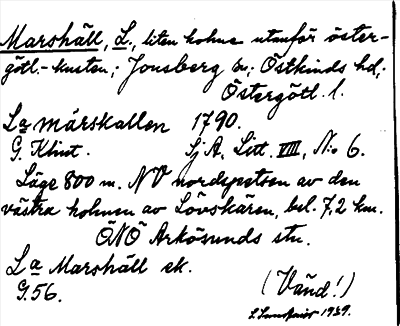 Marshäll, L., liten holme utanför öster-
götl.-kusten; Jonsberg sn; Östkinds hd,
Östergötl. l.
La märskallen 1790.
G. Klint. Sj A, Litt. VIII, No 6.
Läge 800 m. NV nordspetsen av den
västra holmen av Lövskären, bel. 7,2 km.
ÖNÖ Arkösunds stn.
La Marshäll sk.
G.56. (Vänd!)
1939.